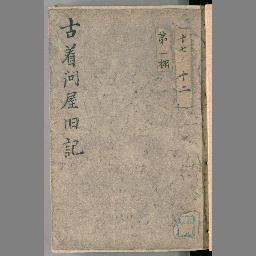 十七ノ十二
第一棚
古着問屋旧記